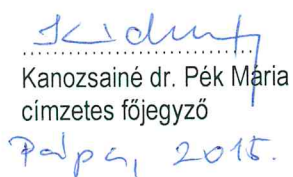 Kanozsainé dr. Pék Mária
címzetes főjegyző
Pápa, 2015.